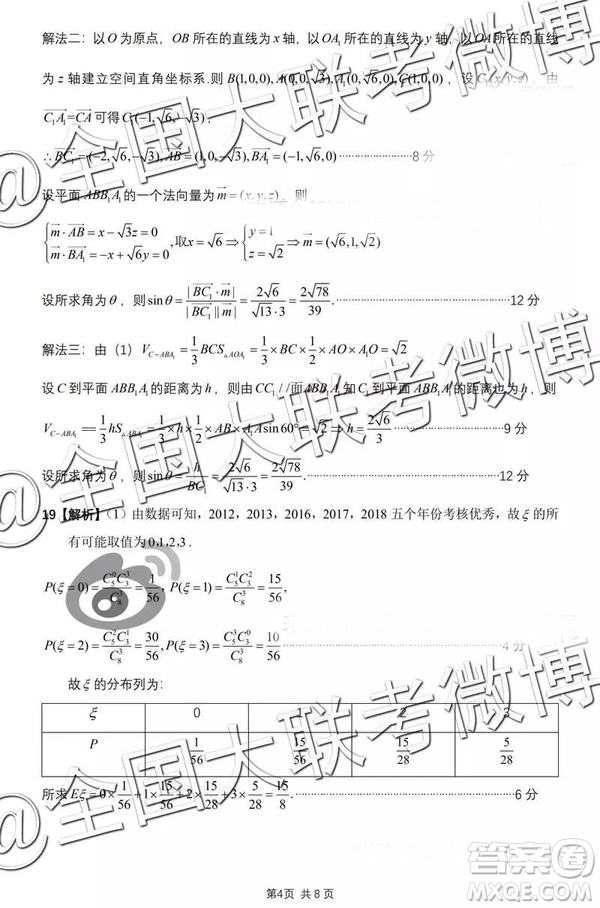 解法二：以O为原点，OB所在的直线为x轴，以OA₁所在的直线为y轴，以OA所在的直线
为z轴建立空间直角坐标系.则B(1,0,0),A(0,0,√3),A₁(0,√6,0),C(1,0,0)，设C₁(x,y,z)，由
C₁A₁=CA可得C(-1,√6,-√3)，
∴BC₁=(-2,√6,-√3),AB=(1,0,-√3),BA₁=(-1,√6,0)⋯⋯8分
设平面ABB₁A₁的一个法向量为m=(x,y,z)，则
{m·AB=x-√3z=0
m·BA₁=-x+√6y=0 ,取x=√6⇒{y=1
z=√2 ⇒m=(√6,1,√2)
设所求角为θ，则sinθ=|BC₁·m|/|BC₁||m|=2√6/√13·3=2√78/39.⋯⋯12分
解法三：由（1）V_{C-ABA₁}=1/3BCS_{△AOA₁}=1/3×BC×1/2×AO×A₁O=√2
设C到平面ABB₁A₁的距离为h，则由CC₁//面ABB₁A₁知C₁到平面ABB₁A₁的距离也为h，则
V_{C-ABA₁}=1/3hS_{△ABA₁}=1/3×h×1/2×AB×A₁Asin60°=√2⇒h=2√6/3⋯⋯9分
设所求角为θ，则sinθ=h/BC₁=2√6/√13·3=2√78/39⋯⋯12分
19【解析】（1）由数据可知，2012，2013，2016，2017，2018五个年份考核优秀，故ξ的所
有可能取值为0,1,2,3.
P(ξ=0)=C₅⁰C₃³/C₈³=1/56, P(ξ=1)=C₅¹C₃²/C₈³=15/56,
P(ξ=2)=C₅²C₃¹/C₈³=30/56, P(ξ=3)=C₅³C₃⁰/C₈³=10/56⋯⋯4分
故ξ的分布列为：
ξ 0 1 2 3
P 1/56 15/56 15/28 5/28
所求Eξ=0×1/56+1×15/56+2×15/28+3×5/28=15/8.⋯⋯6分
第4页 共8页
@全国大联考微博
@全国大联考微博
@全国大联考微博
答案卷
MXQE.COM